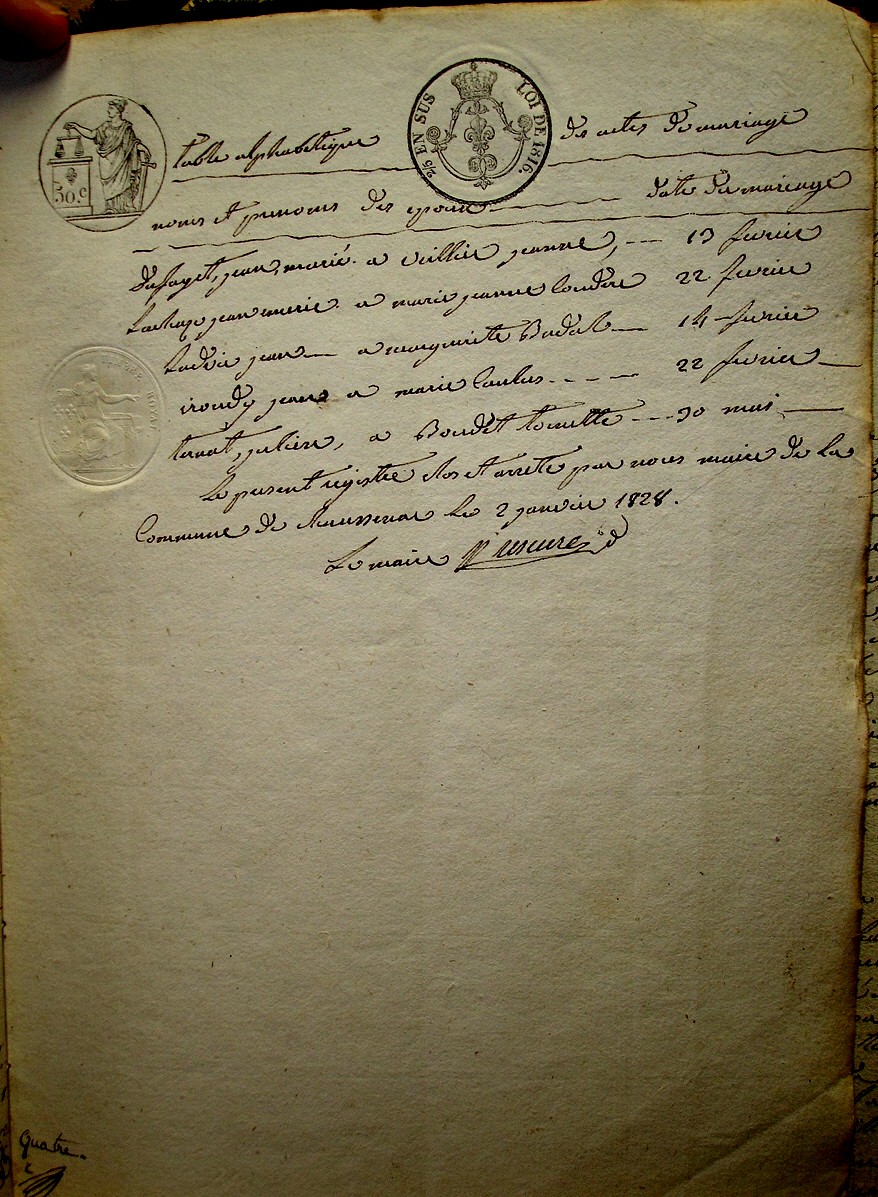 2/5 EN SUS LOI DE 1816.
30 C
table alphabetique des actes de mariage
noms et prenoms des epoux date du mariage
Dafayet, jean, marie. a Veillier jeanne, 13 fevrier
jean merie. a marie jeanne Coudere 22 fevrier
jean a marguerite Badal 14 fevrier
irondy jean a marie Caulus 22 fevrier
tarrat, juliere, a Boudet toinette 30 mai
Le present registre clos et arrete par nous maire de la
Commune de Maussenac Le 2 janvier 1828.
Le maire
Quatre.